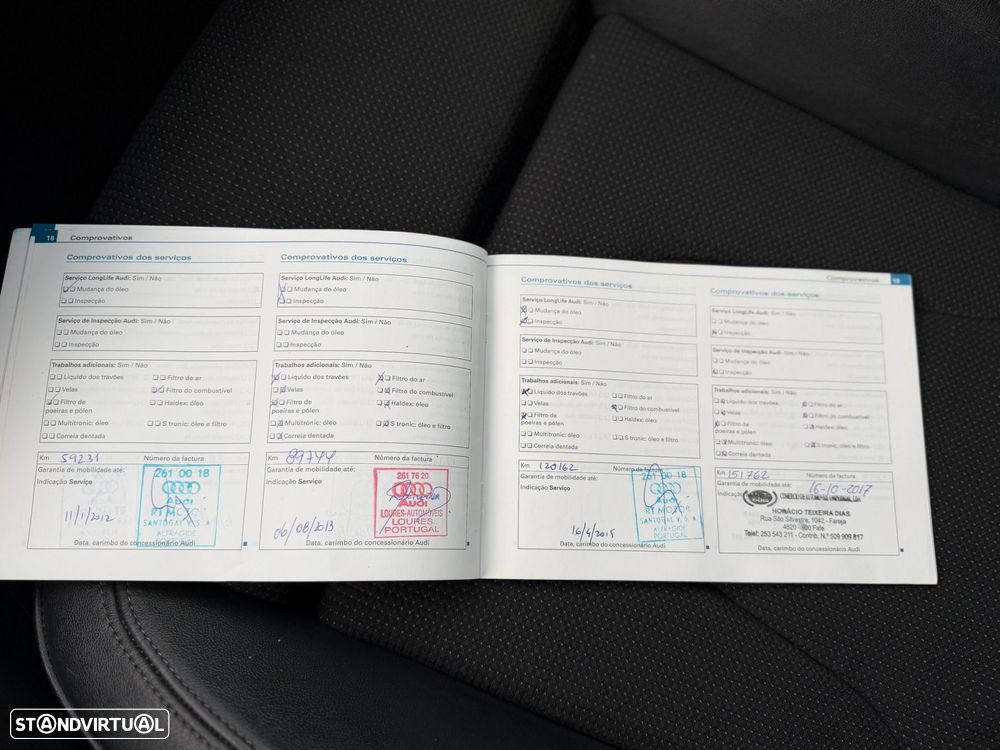 18 Comprovativos
Comprovativos dos serviços
Serviço LongLife Audi: Sim / Não
Mudança do óleo
Inspecção
Serviço de Inspecção Audi: Sim / Não
Mudança do óleo
Inspecção
Trabalhos adicionais: Sim / Não
Líquido dos travões
Filtro do ar
Velas
Filtro do combustível
Filtro de
poeiras e pólen
Haldex: óleo
Multitronic: óleo
S tronic: óleo e filtro
Correia dentada
Km 59231
Número da factura
Garantia de mobilidade até:
Indicação Serviço
261 00 18
Audi
SANTOGAL V, S.A.
ALFRAGIDE
PORTUGAL
11/1/2012
Data, carimbo do concessionário Audi
Comprovativos dos serviços
Serviço LongLife Audi: Sim / Não
Mudança do óleo
Inspecção
Serviço de Inspecção Audi: Sim / Não
Mudança do óleo
Inspecção
Trabalhos adicionais: Sim / Não
Líquido dos travões
Filtro do ar
Velas
Filtro do combustível
Filtro de
poeiras e pólen
Haldex: óleo
Multitronic: óleo
S tronic: óleo e filtro
Correia dentada
Km 89744
Número da factura
Garantia de mobilidade até:
Indicação Serviço
261 76 20
Audi
LOURES-AUTOMÓVEIS
LOURES
PORTUGAL
06/08/2013
Data, carimbo do concessionário Audi
Comprovativos dos serviços
Serviço LongLife Audi: Sim / Não
Mudança do óleo
Inspecção
Serviço de Inspecção Audi: Sim / Não
Mudança do óleo
Inspecção
Trabalhos adicionais: Sim / Não
Líquido dos travões
Filtro do ar
Velas
Filtro do combustível
Filtro de
poeiras e pólen
Haldex: óleo
Multitronic: óleo
S tronic: óleo e filtro
Correia dentada
Km 120162
Número da
Garantia de mobilidade até:
Indicação Serviço
261 00 18
Audi
SANTOGAL V, S.A.
ALFRAGIDE
PORTUGAL
16/4/2015
Data, carimbo do concessionário Audi
Comprovativos 19
Comprovativos dos serviços
Serviço LongLife Audi: Sim / Não
Mudança do óleo
Inspecção
Serviço de Inspecção Audi: Sim / Não
Mudança do óleo
Inspecção
Trabalhos adicionais: Sim / Não
Líquido dos travões
Filtro do ar
Velas
Filtro do combustível
Filtro de
poeiras e pólen
Haldex: óleo
Multitronic: óleo
S tronic: óleo e filtro
Correia dentada
Km 151762
Número da factura
Garantia de mobilidade até:
16-10-2017
Indicação
HORÁCIO TEIXEIRA DIAS
Rua São Silvestre, 1042 - Fareja
4820 - Fafe
Telef: 253 543 211 - Contrib. N.º 509 909 817
Data, carimbo do concessionário Audi
STANDVIRTUAL